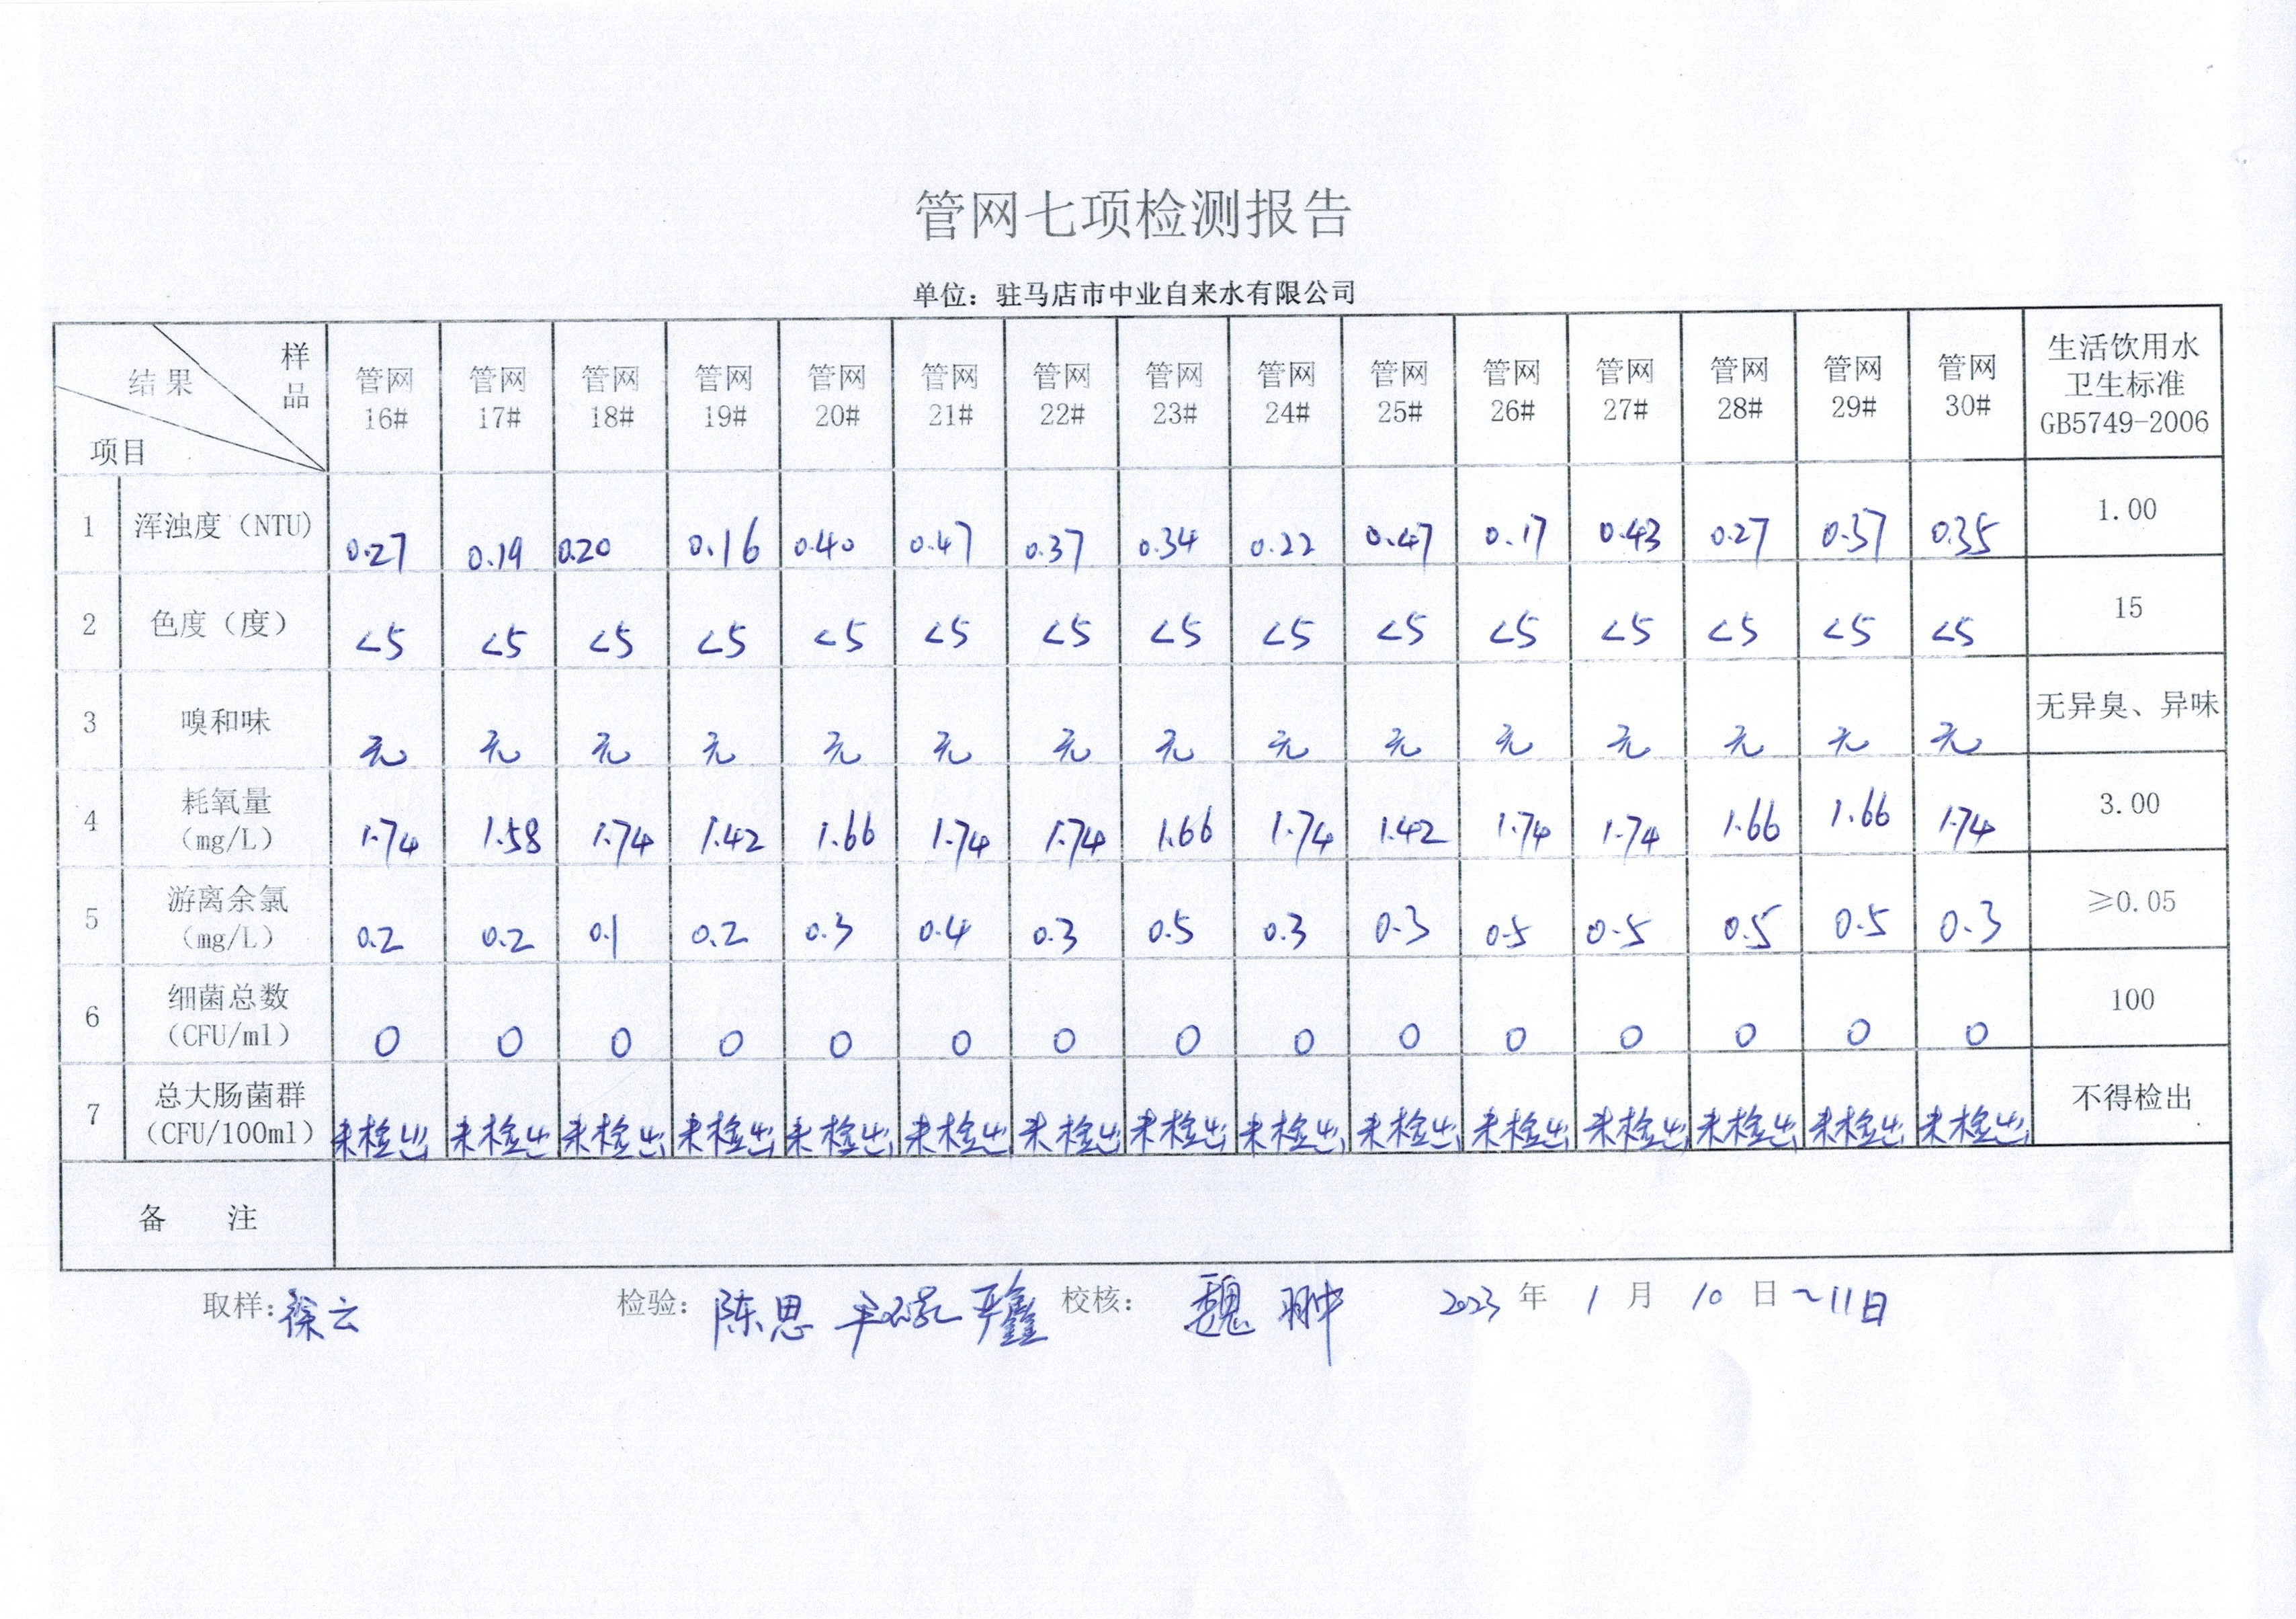 管网七项检测报告
单位：驻马店市中业自来水有限公司
结果 样品 项目 管网16# 管网17# 管网18# 管网19# 管网20# 管网21# 管网22# 管网23# 管网24# 管网25# 管网26# 管网27# 管网28# 管网29# 管网30# 生活饮用水卫生标准GB5749-2006
1 浑浊度（NTU) 0.27 0.19 0.20 0.16 0.40 0.47 0.37 0.34 0.22 0.47 0.17 0.43 0.27 0.37 0.35 1.00
2 色度（度） <5 <5 <5 <5 <5 <5 <5 <5 <5 <5 <5 <5 <5 <5 <5 15
3 嗅和味 无 无 无 无 无 无 无 无 无 无 无 无 无 无 无 无异臭、异味
4 耗氧量（mg/L） 1.74 1.58 1.74 1.42 1.66 1.74 1.74 1.66 1.74 1.42 1.74 1.74 1.66 1.66 1.74 3.00
5 游离余氯（mg/L） 0.2 0.2 0.1 0.2 0.3 0.4 0.3 0.5 0.3 0.3 0.5 0.5 0.5 0.5 0.3 ≥0.05
6 细菌总数（CFU/ml） 0 0 0 0 0 0 0 0 0 0 0 0 0 0 0 100
7 总大肠菌群（CFU/100ml） 未检出 未检出 未检出 未检出 未检出 未检出 未检出 未检出 未检出 未检出 未检出 未检出 未检出 未检出 未检出 不得检出
备 注
取样: 徐云 检验: 陈思 校核: 魏翀 2023 年 1 月 10 日～11日